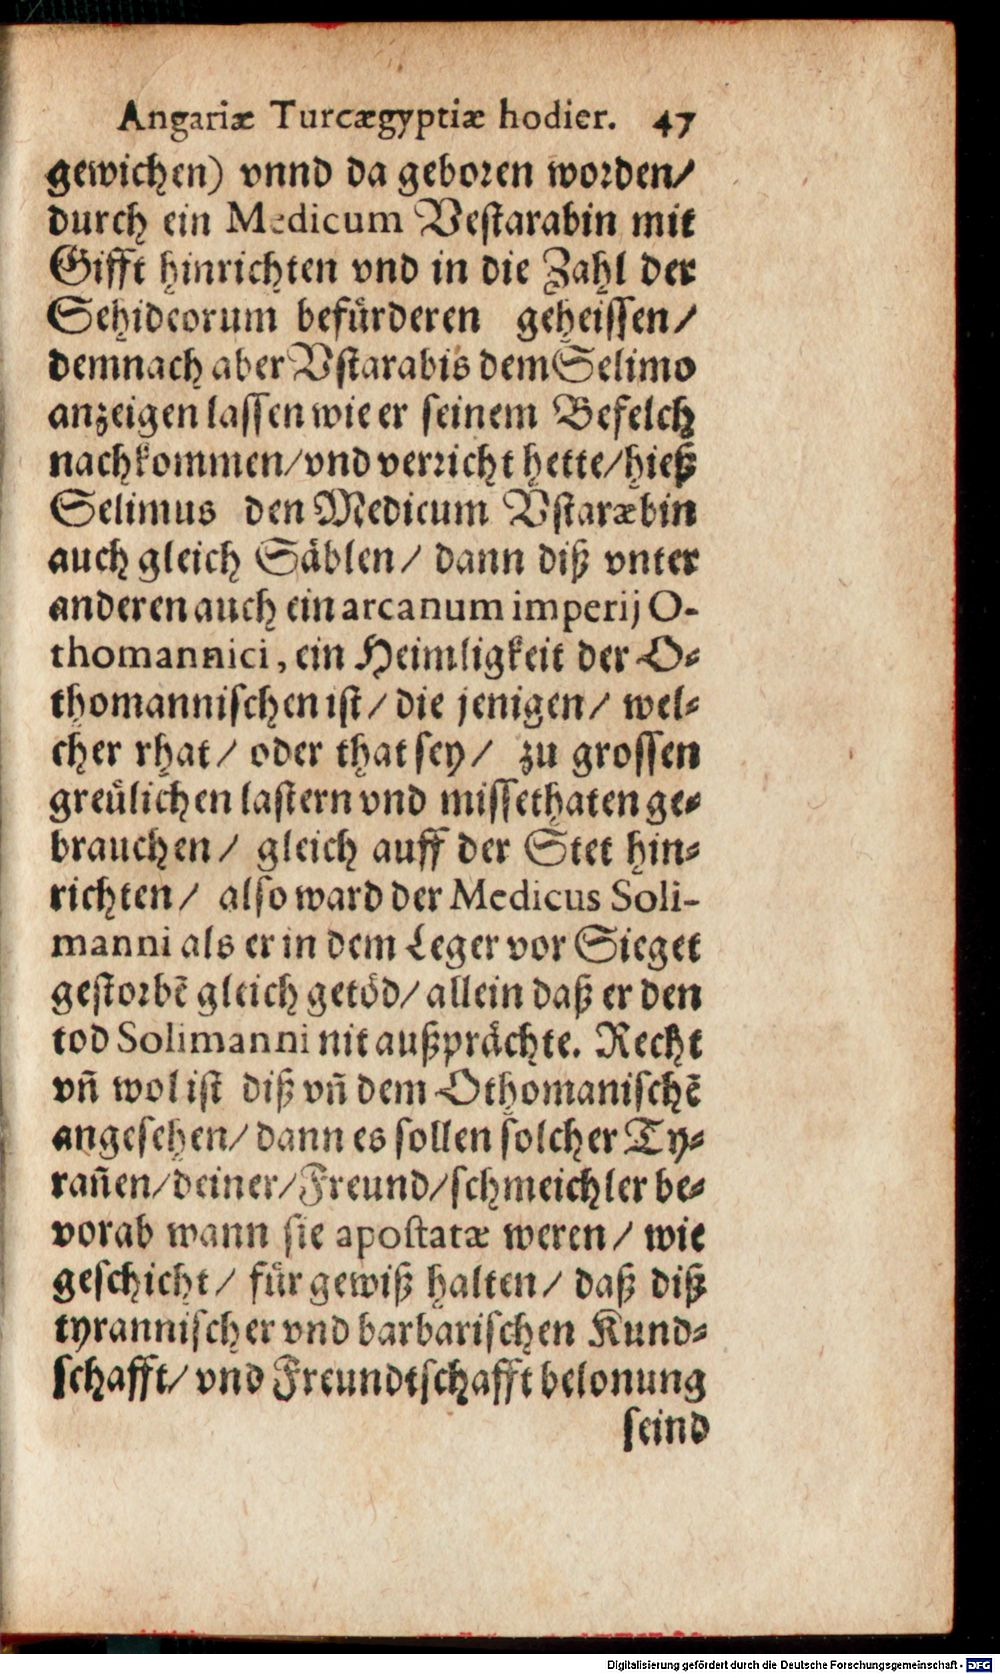 Angariæ Turcægyptiæ hodier. 47
gewichen) vnnd da geboren worden/
durch ein Medicum Vestarabin mit
Gifft hinrichten vnd in die Zahl der
Sehideorum befürderen geheissen/
demnach aber Vstarabis dem Selimo
anzeigen lassen wie er seinem Befelch
nachkommen/ vnd verricht hette/ hieß
Selimus den Medicum Vstaræbin
auch gleich Säblen/ dann diß vnter
anderen auch ein arcanum imperij O-
thomannici, ein Heimligkeit der O-
thomannischen ist/ die jenigen/ wel-
cher rhat/ oder that sey/ zu grossen
greülichen lastern vnd missethaten ge-
brauchen/ gleich auff der Stet hin-
richten/ also ward der Medicus Soli-
manni als er in dem Leger vor Sieget
gestorbẽ gleich getöd/ allein daß er den
tod Solimanni nit außprächte. Recht
vñ wol ist diß vñ dem Othomanischẽ
angesehen/ dann es sollen solcher Ty-
rañen/ deiner/ Freund/ schmeichler be-
vorab wann sie apostatæ weren/ wie
geschicht/ für gewiß halten/ daß diß
tyrannischer vnd barbarischen Kund-
schafft/ vnd Freundtschafft belonung
seind
Digitalisierung gefördert durch die Deutsche Forschungsgemeinschaft - DFG